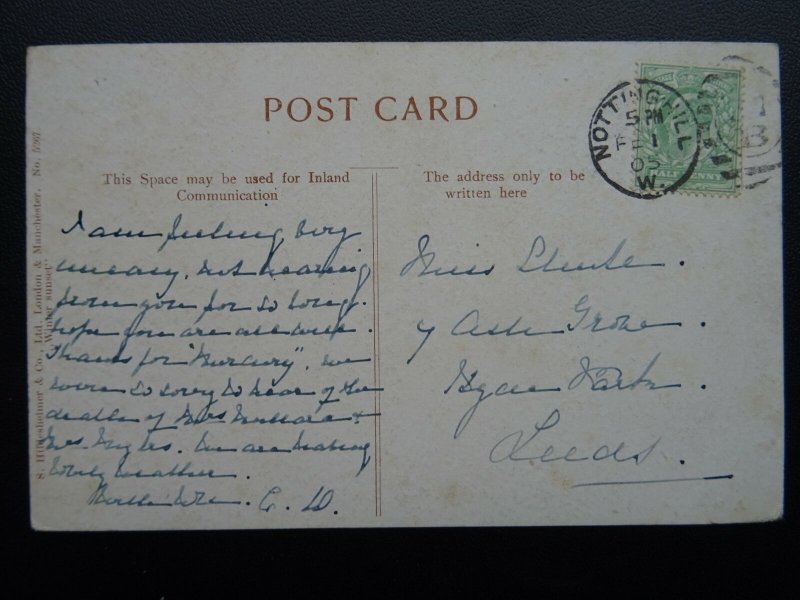 POST CARD
This Space may be used for Inland
Communication
The address only to be
written here
NOTTING HILL
5 PM
FE 1
05
W.
HALF PENNY
S. Hildesheimer & Co., Ltd. London & Manchester. No. 5267
"Winter sunset"
I am feeling very
uneasy, not hearing
from you for so long.
hope you are all well.
Thanks for "Mercury", we
were so sorry to hear of the
death of Mrs &
Mrs Myles. We are having
lovely weather.
C. D.
Miss
7 Ash Grove.
Hyde Park.
Leeds.